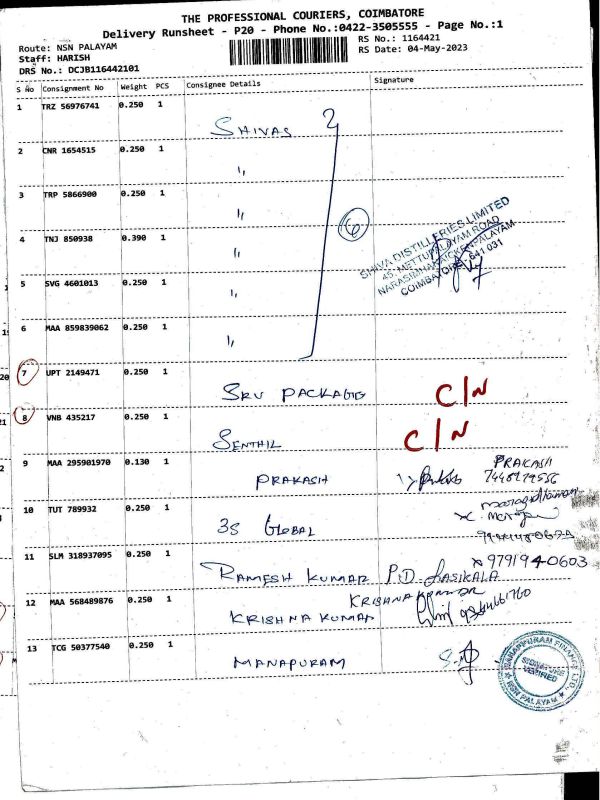 THE PROFESSIONAL COURIERS, COIMBATORE
Delivery Runsheet - P20 - Phone No.:0422-3505555 - Page No.:1
Route: NSN PALAYAM
RS No.: 1164421
Staff: HARISH
RS Date: 04-May-2023
DRS No.: DCJB116442101
S No Consignment No Weight PCS Consignee Details Signature
1 TRZ 56976741 0.250 1
SHIVAS
2 CNR 1654515 0.250 1
〃
3 TRP 5866900 0.250 1
〃
6
4 TNJ 850938 0.390 1
〃
SHIVA DISTILLERIES LIMITED
45, METTUPALAYAM ROAD
NARASIMHANAICKENPALAYAM
COIMBATORE - 641 031
5 SVG 4601013 0.250 1
〃
6 MAA 859839062 0.250 1
〃
7 UPT 2149471 0.250 1
SRV PACKAGG C/N
8 VNB 435217 0.250 1
SENTHIL C/N
9 MAA 295901970 0.130 1
PRAKASH
PRAKASH
10 TUT 789932 0.250 1
3S GLOBAL
11 SLM 318937095 0.250 1
9791940603
RAMESH KUMAR P.D. SASIKALA
12 MAA 568489876 0.250 1
KRISHNAKUMAR
KRISHNA KUMAR
13 TCG 50377540 0.250 1
MANAPURAM
MANAPPURAM FINANCE LTD.,
SIGNATURE
VERIFIED
NSN PALAYAM